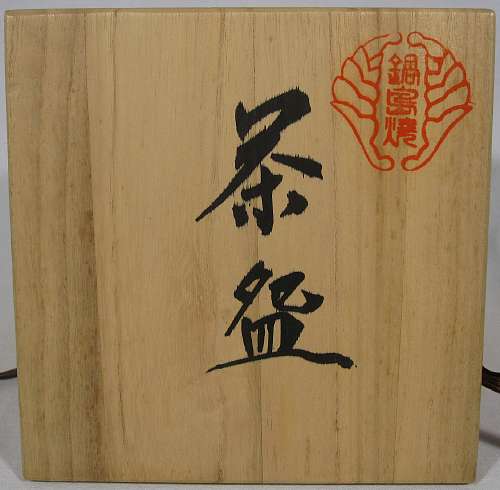 鍋島焼
茶盌